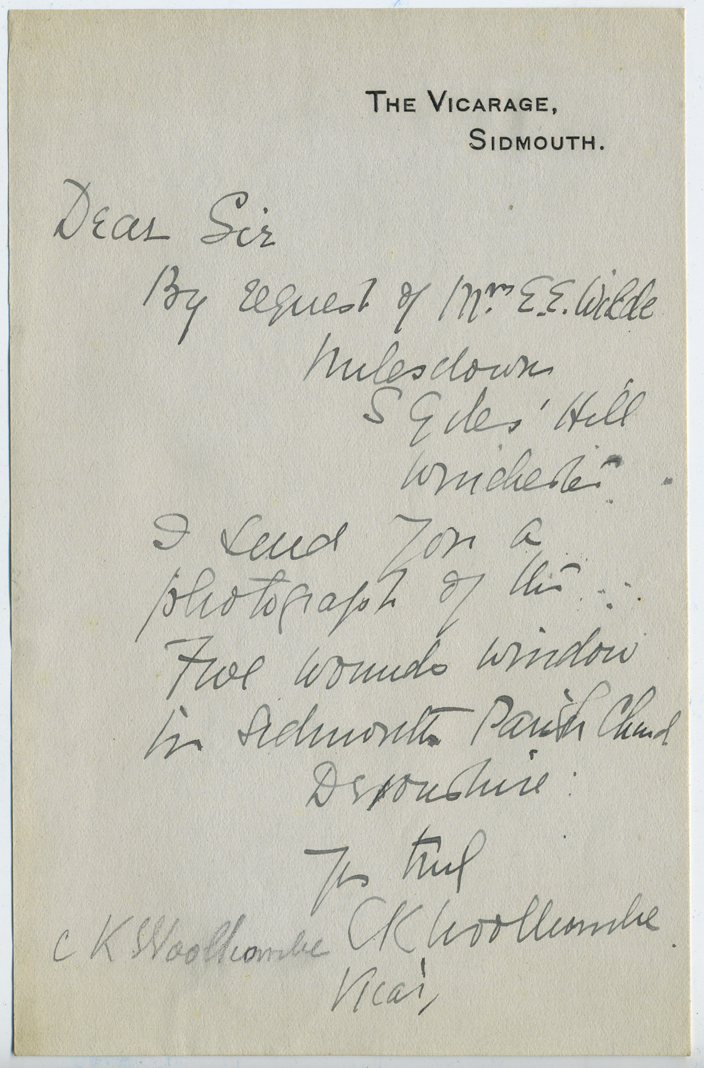 THE VICARAGE,
SIDMOUTH.
Dear Sir
By request of Mrs. E.E. Wilde
Milesdown
S Giles' Hill
Winchester
I send you a
photograph of the
Five wounds window
in Sidmouth Parish Church
Devonshire
Yrs truly
C K Woollcombe
C K Woollcombe
Vicar,